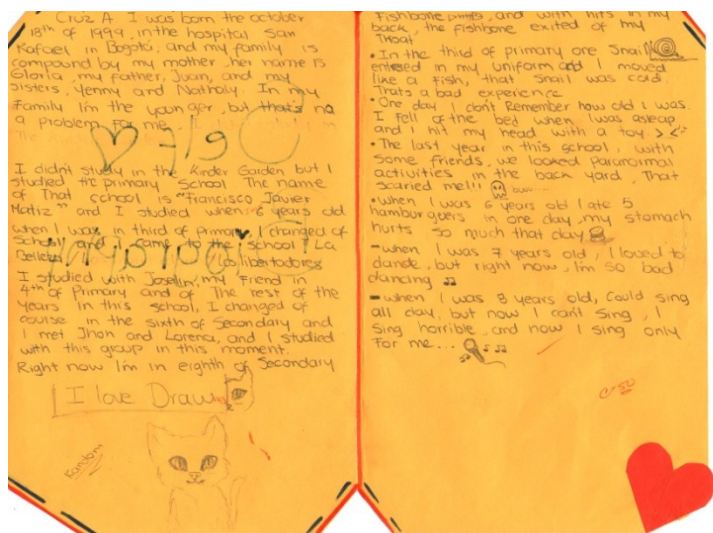 Cruz A. I was born the october
18th of 1999, in the hospital San
Rafael in Bogotá, and my family is
compound by my mother, her name is
Gloria, my father, Juan, and my
sisters, Yenny and Nathaly. In my
Family I'm the younger, but that's no
a problem for me
I didn't study in the Kinder Garden but I
studied the primary School. The name
of That school is "Francisco Javier
Matiz" and I studied when 6 years old
when I was in third of primary, I changed of
School and I came to the school La
Belleza Los libertadores
I studied with Joselin, my Friend in
4th of Primary and of The rest of the
years in this school, I changed of
course in the sixth of Secondary and
I met Jhon and Lorena, and I studied
with this group in this moment.
Right now I'm in eighth of Secondary
I love Draw
Random
Fishbone, and with hits in my
back, the fishbone exited of my
Troat
• In the third of primary one Snail
entered in my uniform and I moved
like a Fish, that snail was cold.
Thats a bad experience
• One day I don't Remember how old I was.
I fell of the bed when I was asleap
and I hit my head with a toy. >.<
• The last year in this school, with
Some friends, we looked paranormal
activities in the back yard, That
scaried me!!!
• when I was 6 years old I ate 5
hamburguers in one day, my stomach
hurts so much that day
- when I was 7 years old, I loved to
dance, but right now, I'm so bad
dancing
- when I was 8 years old, Could sing
all day, but now I can't Sing, I
Sing horrible, and now I sing only
For me...